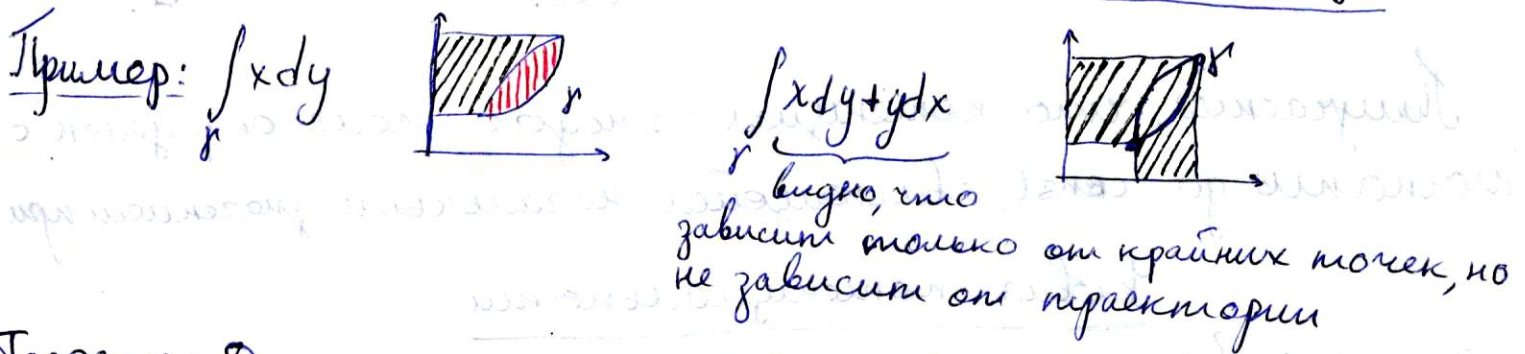 Пример: ∫ x dy γ
γ
∫ x dy + y dx γ
γ
видно, что
зависит только от крайних точек, но
не зависит от траектории